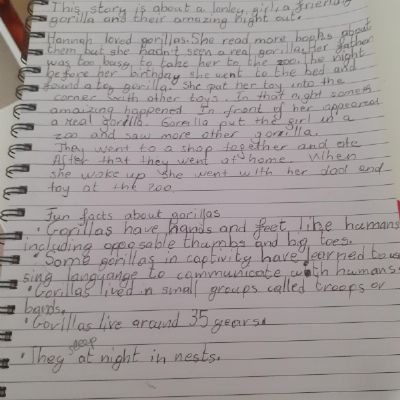 This story is about a lonley girl, a friendly
gorilla and their amazing night out.
Hannah loved gorillas. She read more books about
them but she hadn't seen a real gorilla. Her father
was too busy to take her to the zoo. The night
before her birthday she went to the bed and
found a toy gorilla. She put her toy into the
corner with other toys. In that night someth
amazing happened. In front of her appeared
a real gorilla. Gorilla put the girl in a
zoo and saw more other gorilla.
They went to a shop together and ate
After that they went at home. When
she woke up she went with her dad and
toy at the zoo.
Fun facts about gorillas
• Gorillas have hands and feet like humans
including opposable thumbs and big toes.
• Some gorillas in captivity have learned to us
sing languange to communicate with humans
• Gorillas lived n small groups called troops or
bands.
• Gorillas live around 35 years.
• They sleep at night in nests.